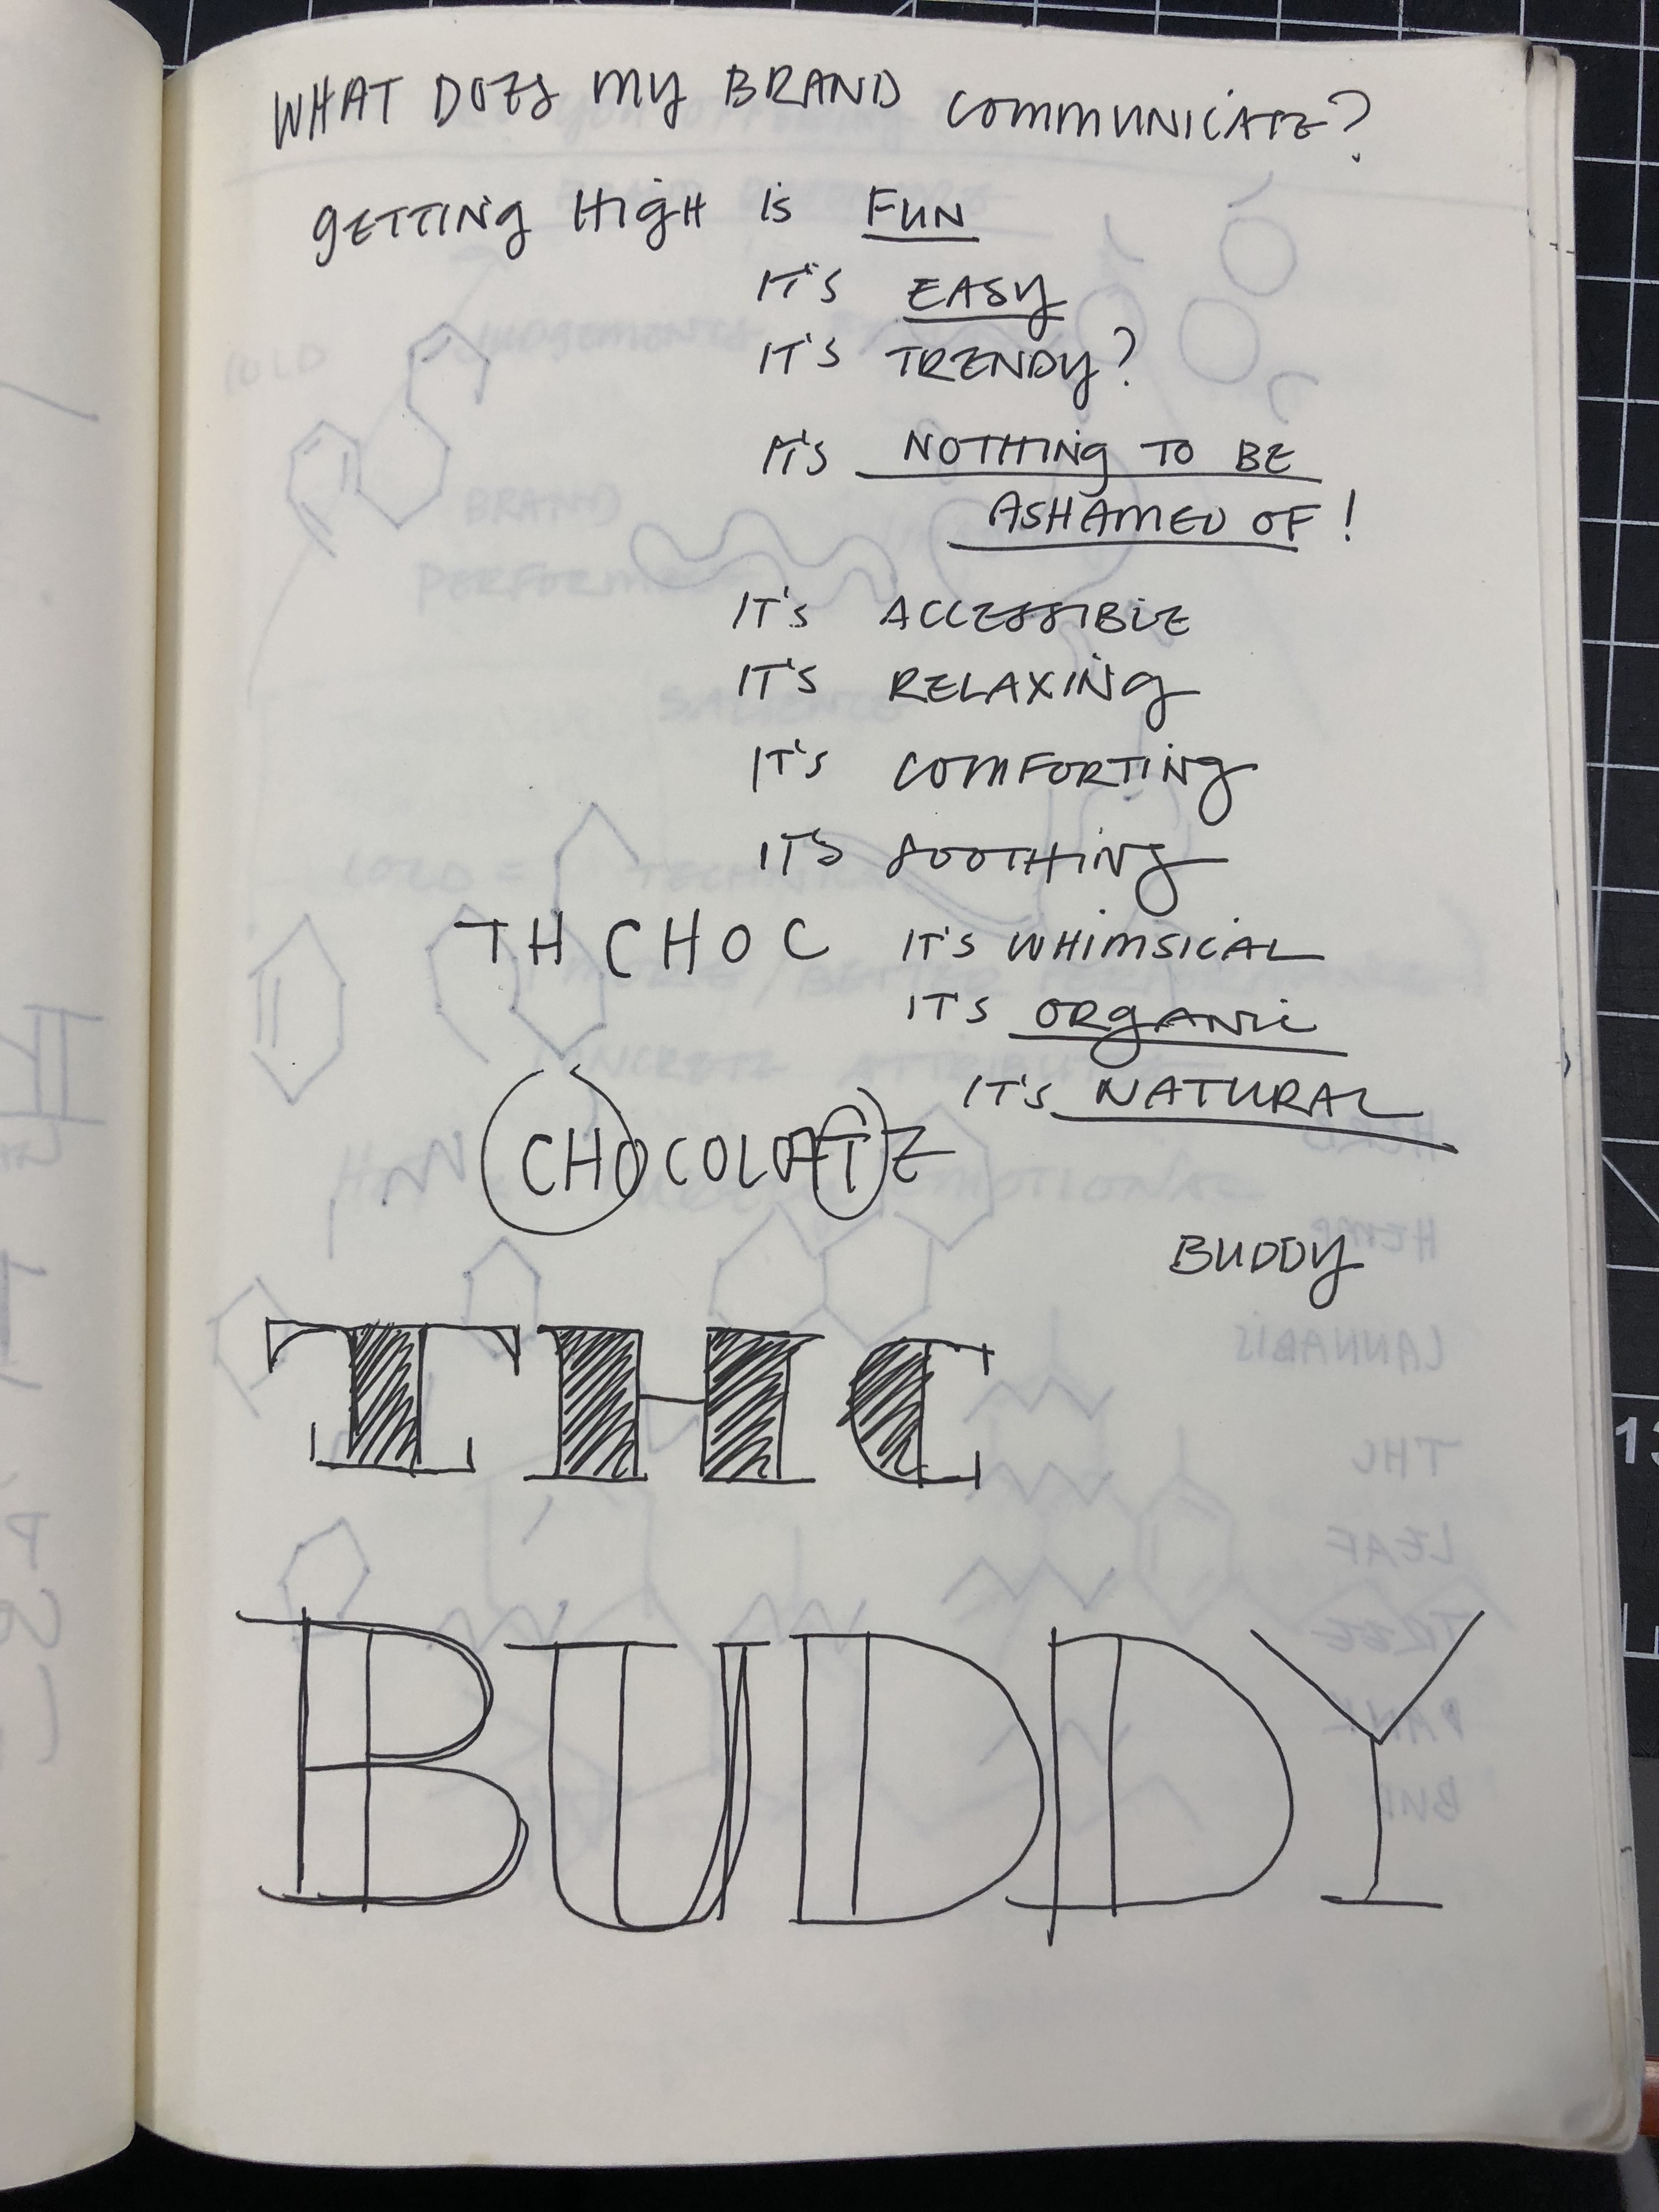 WHAT DOES MY BRAND COMMUNICATE?
GETTING HIGH IS FUN
IT'S EASY
IT'S TRENDY?
IT'S NOTHING TO BE
ASHAMED OF!
IT'S ACCESSIBLE
IT'S RELAXING
IT'S COMFORTING
IT'S SOOTHING
THCHOC IT'S WHIMSICAL
IT'S ORGANIC
IT'S NATURAL
CHOCOLATE
BUDDY
THC
BUDDY
13